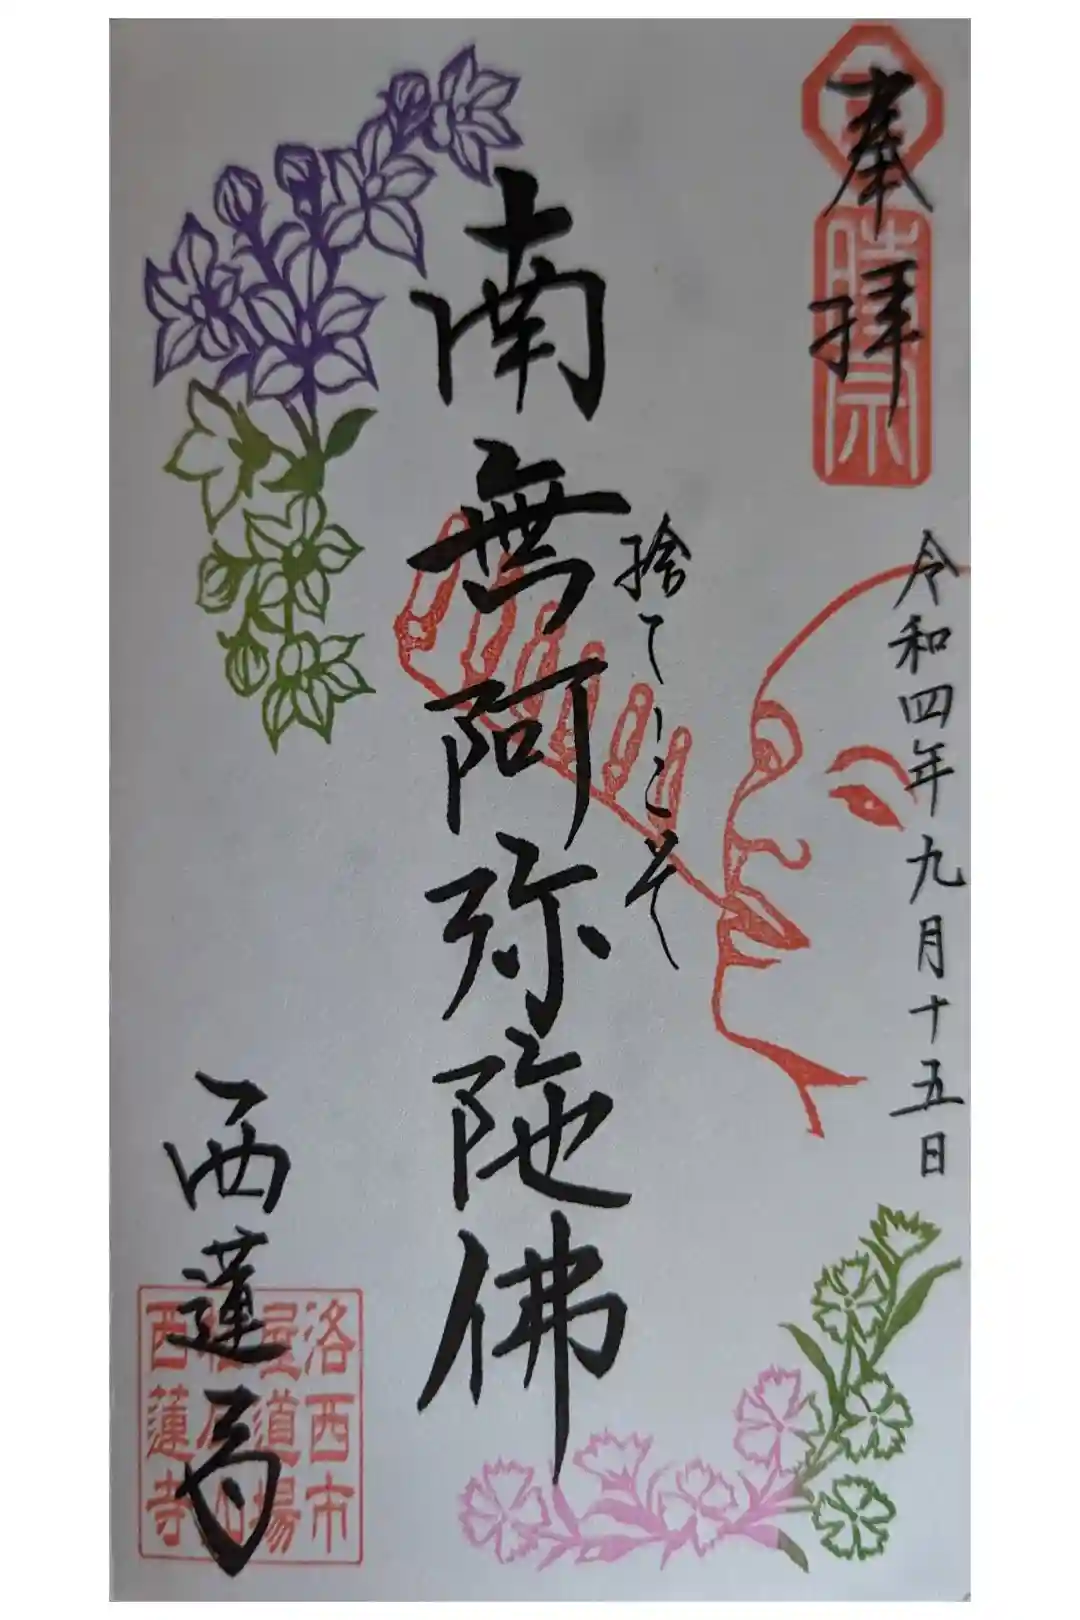 奉拝
時宗
令和四年九月十五日
捨てこそ
南無阿弥陀佛
西蓮寺
洛西市
屋道場
西蓮寺